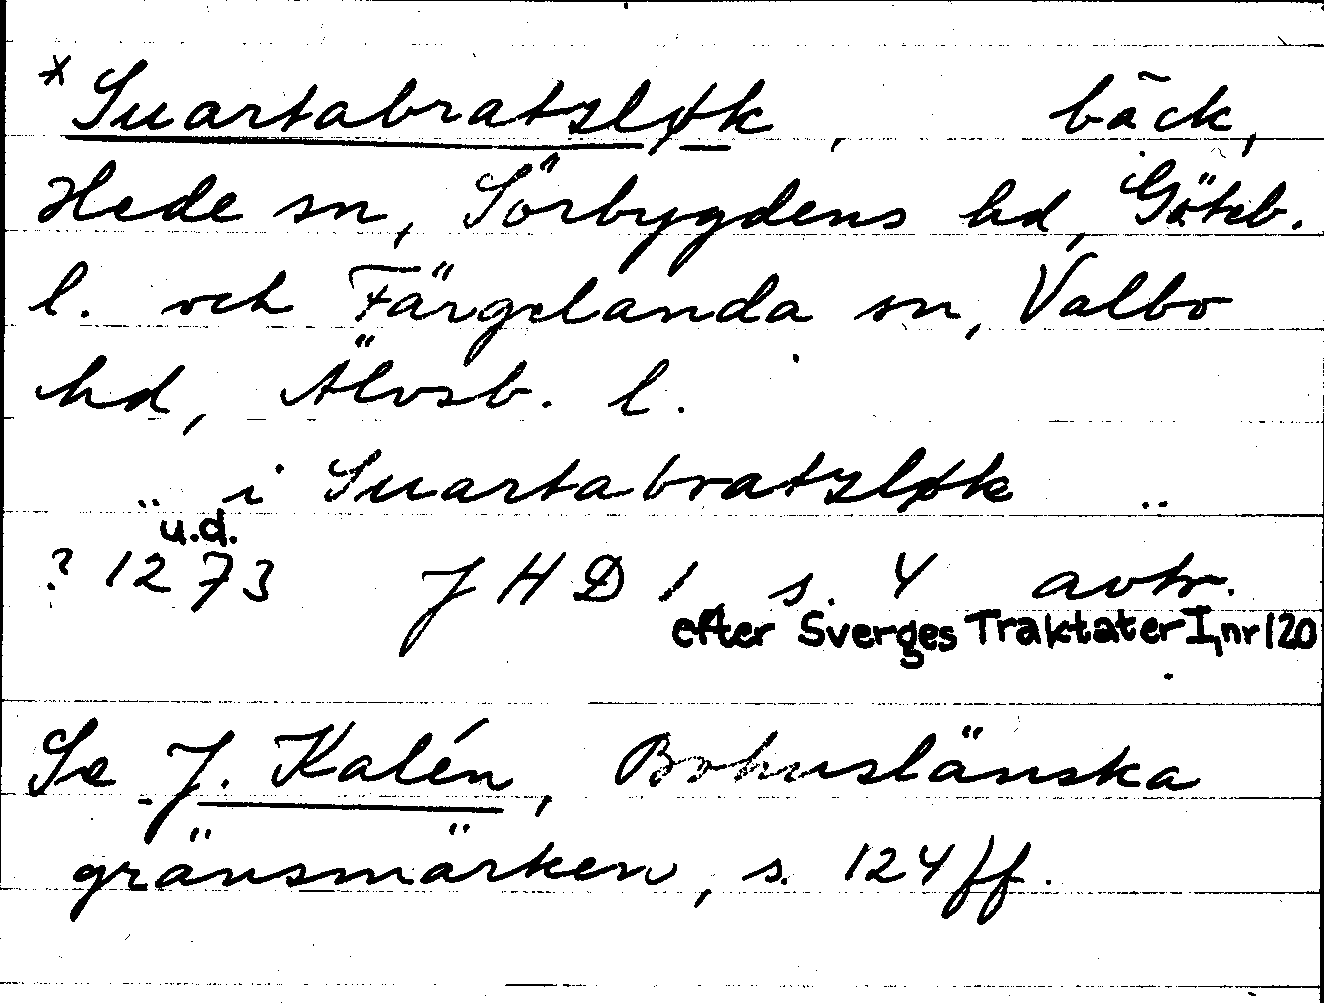 *Suartabratzløk, bäck,
Hede sn, Sörbygdens hd, Göteb.
l. och Färgelanda sn, Valbo
hd, Älvsb. l.
.. i Suartabratzløk ..
u.d.
? 1273 JHD 1 s. 4 avtr.
efter Sverges Traktater I, nr 120
Se J. Kalén, Bohuslänska
gränsmärken, s. 124 ff.